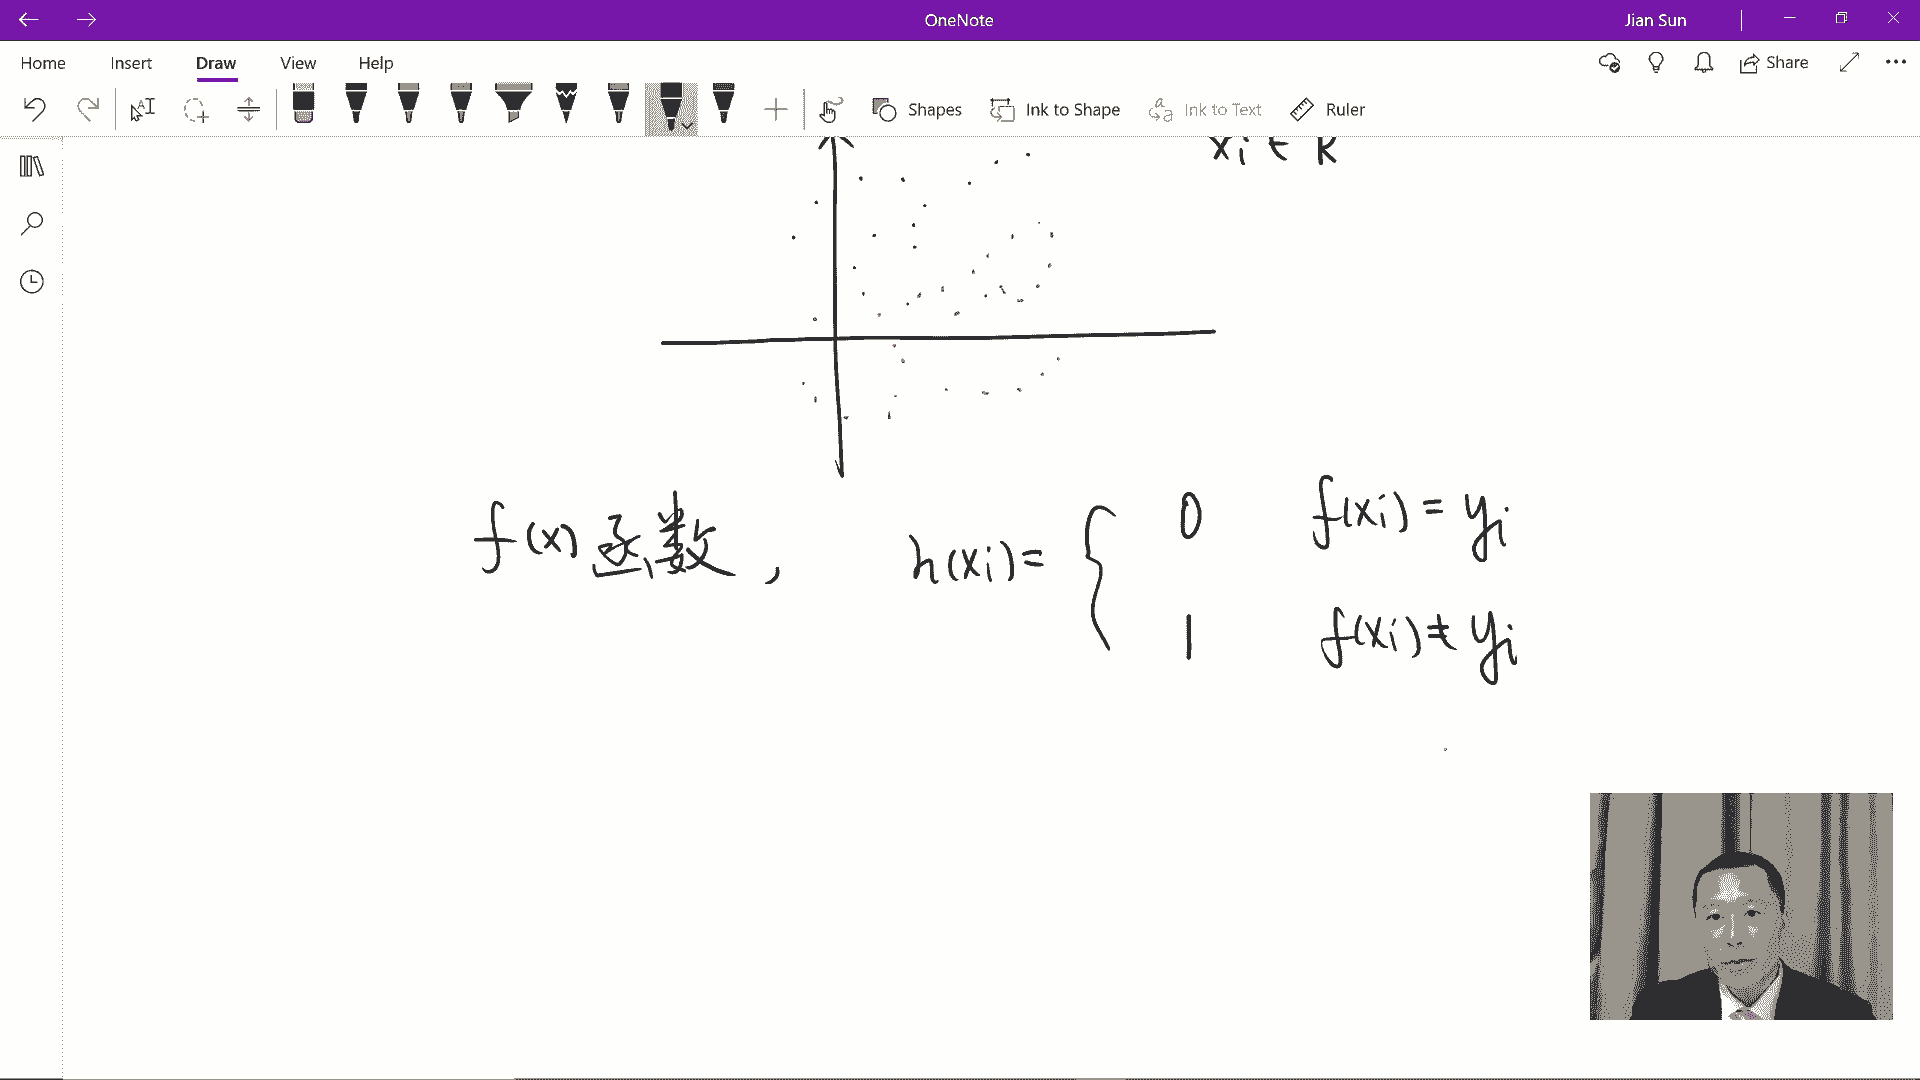 OneNote
Jian Sun
Home Insert Draw View Help
Share
Shapes Ink to Shape Ink to Text Ruler
xi ∈ R
f(x) 函数, h(xi)= { 0 f(xi) = yi
1 f(xi) ≠ yi